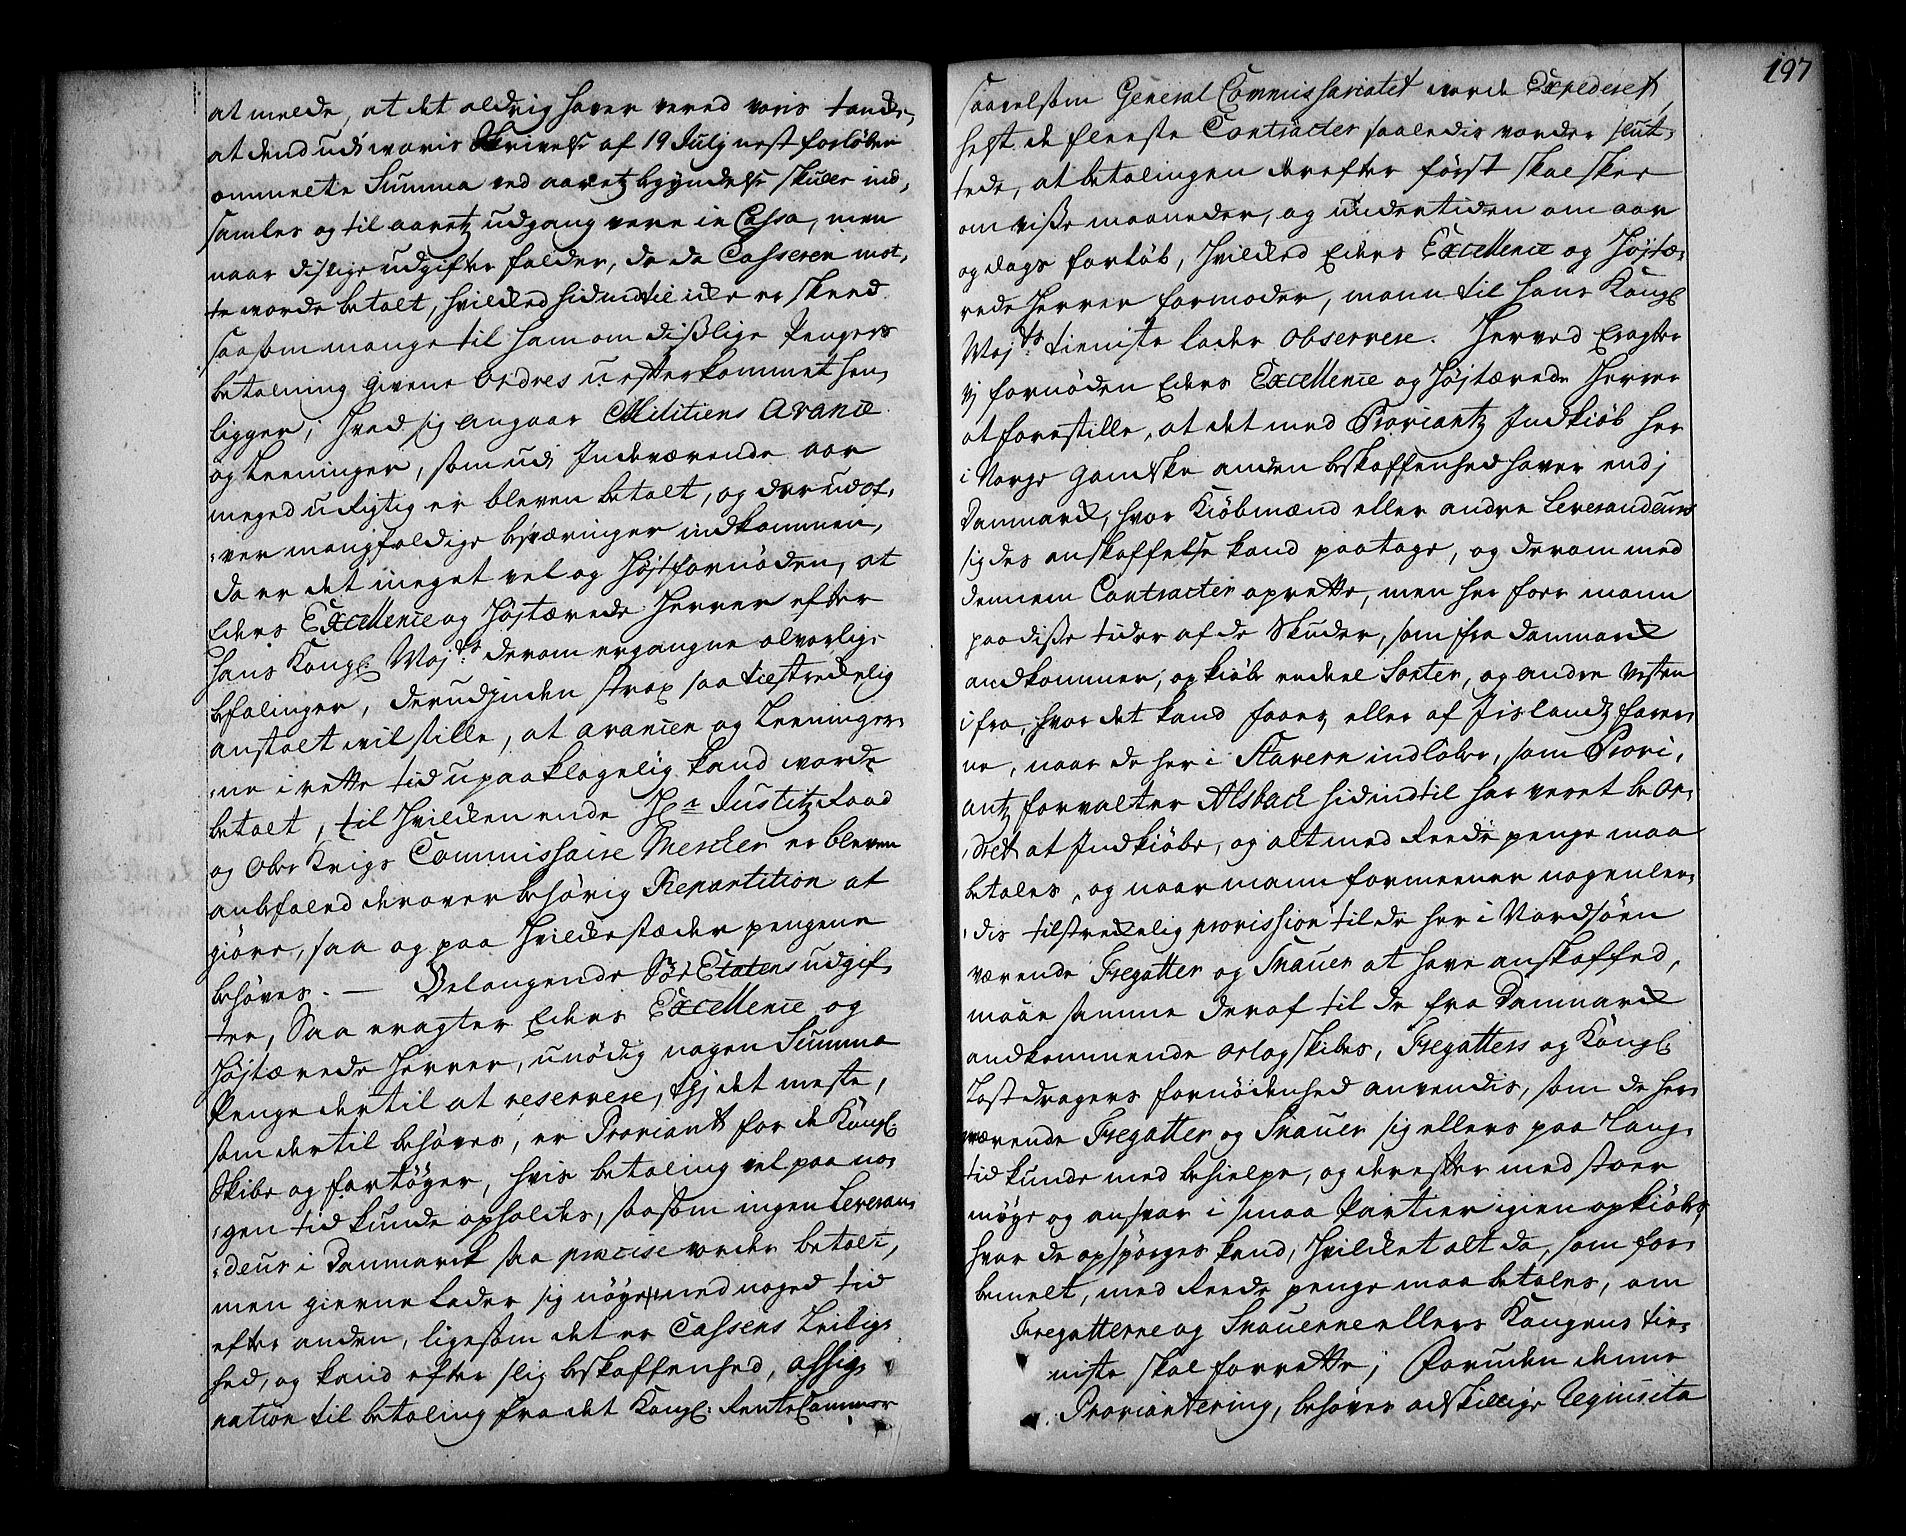 at melde, at det aldrig haver vered voris tancke,
at dend udi woris Skrivelse af 19 July nest forløben
ommelte Summa ved aaretz begyndelse skulle ind,
samles og til aaretz udgang vere in Cassa, men
naar dislige udgifter falder, da de Casseren mot,
te worde betalt, hvilcked hidindtil icke er skeed
saasom mange til ham om dißlige Pengers
betalning givene Ordres uefterkommet hen,
ligger; Hvad sig angaar Militiens Avance
og Leeninger, som udi Indeværende aar
meged urigtig er bleven betalt, og derudof,
,ver mangfoldige besværinger indkommen,
da er det meget vel og Højstfornøden, at
Eders Excellence og Højtærede Herrer efter
Hans Kongl: Maj.ts derom ergangne alvorlige
befalinger, derudjnden strax saa tilstreckelig
anstalt wil stille, at avancen og Leeninger,
,ne i rette tid upaaklagelig kand worde
betalt, til hvilcken ende Hr. Justitz Raad
og Ober Krigs Commissaire Mercker er bleven
anbefaled derover behørig Repartition at
giøre, saa og paa hvilcke stæder pengene
behøves. — Belangende Søe Etatens udgif,
ter, Saa eragter Eders Excellence og
Højtærede Herrer, unødig nogen Summa
Penge dertil at reservere, thj det meste,
som dertil behøves, er Proviant for de Kongl:
Skibe og fartøyer, hvis betaling vel paa no,
,gen tid kunde opholdes, saasom ingen Leveran,
,deur i Danmarck saa præcise vorder betalt,
men gierne lader sig nøye med noged tid
efter anden, ligesom det er Cassens Leilig,
hed, og kand efter slig beskaffenhed, assig,
nation til betaling fra det Kongl: Rente Cammer
197
saavelsom General Commissariatet worde Expederet,
helst de fleeste Contracter saaledis vorder slut,
tede, at betalingen derefter først skal skee
om visse maaneder, og undertiden om aar
og dags forløb, hvilcked Eders Excellence og Højtæ,
rede Herrer formoder, mann til Hans Kongl:
Maj.ts tieniste lader observere. Herved Eragter
vj fornøden Eders Excellence og Højtærede Herrer
at forestille, at det med Proviantz Indkiøb her
i Norge ganske anden beskaffenhed haver end j
Danmarck, hvor Kiøbmænd eller andre Leverandeurs
sig des anskaffelse kand paatage, og derom med
dennem Contracter oprette, men her faar mann
paa disse tider af de Skuder, som fra Danmarck
andkommer, opkiøbe endeel Sorter, og andre Westen
ifra, hvor det kand faaes eller af Jislandz farer,
ne, naar de her i Stavern indløber, som Provi,
antz forvalter Alsback hidindtil har veret beor,
,dret at Indkiøbe, og alt med Reede penge maa
betales, og naar mann formeener nogenler,
,dis tilstreckelig provission til de her i Nordsøen
værende Fregatter og Snauer at have anskaffed,
maae samme deraf til de fra Danmarck
andkommende Orlogskibes, Fregatters og Kongl:
Lastdragers fornødenhed anvendis, som de her,
værende Fregatter og Snauer sig ellers paa Lang,
tid kunde med behielpe, og derefter med stoer
møye og ansvar i smaa Partier igien opkiøbes,
hvor de opspørges kand, hvilcket alt da, som for,
bemelt, med Reede penge maa betales, om
Fregatterne og Snauerne ellers Kongens tie,
niste skal forrette; Foruden denne
Proviantering, behøves adskillige Requisita